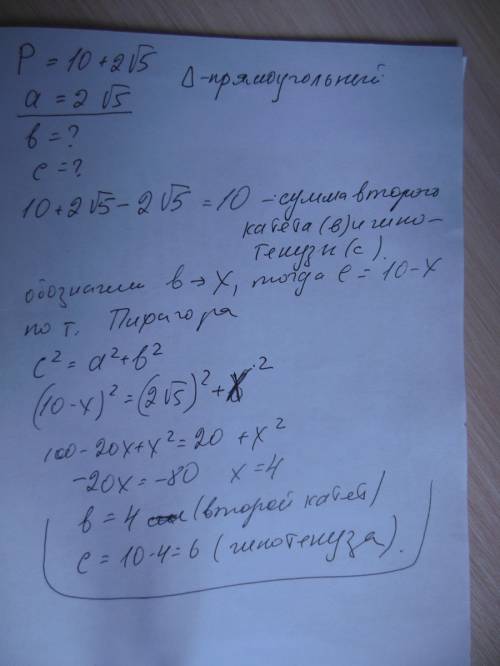 P = 10 + 2√5
Δ-прямоугольный
a = 2√5
в = ?
c = ?
10 + 2√5 - 2√5 = 10 - сумма второго
катета (в) и гипо-
тенузы (с).
обозначим в → X, тогда c = 10 - X
по т. Пифагора
c² = a² + b²
(10 - x)² = (2√5)² + X²
100 - 20x + x² = 20 + x²
-20x = -80 x = 4
в = 4 (второй катет)
c = 10 - 4 = 6 (гипотенуза).